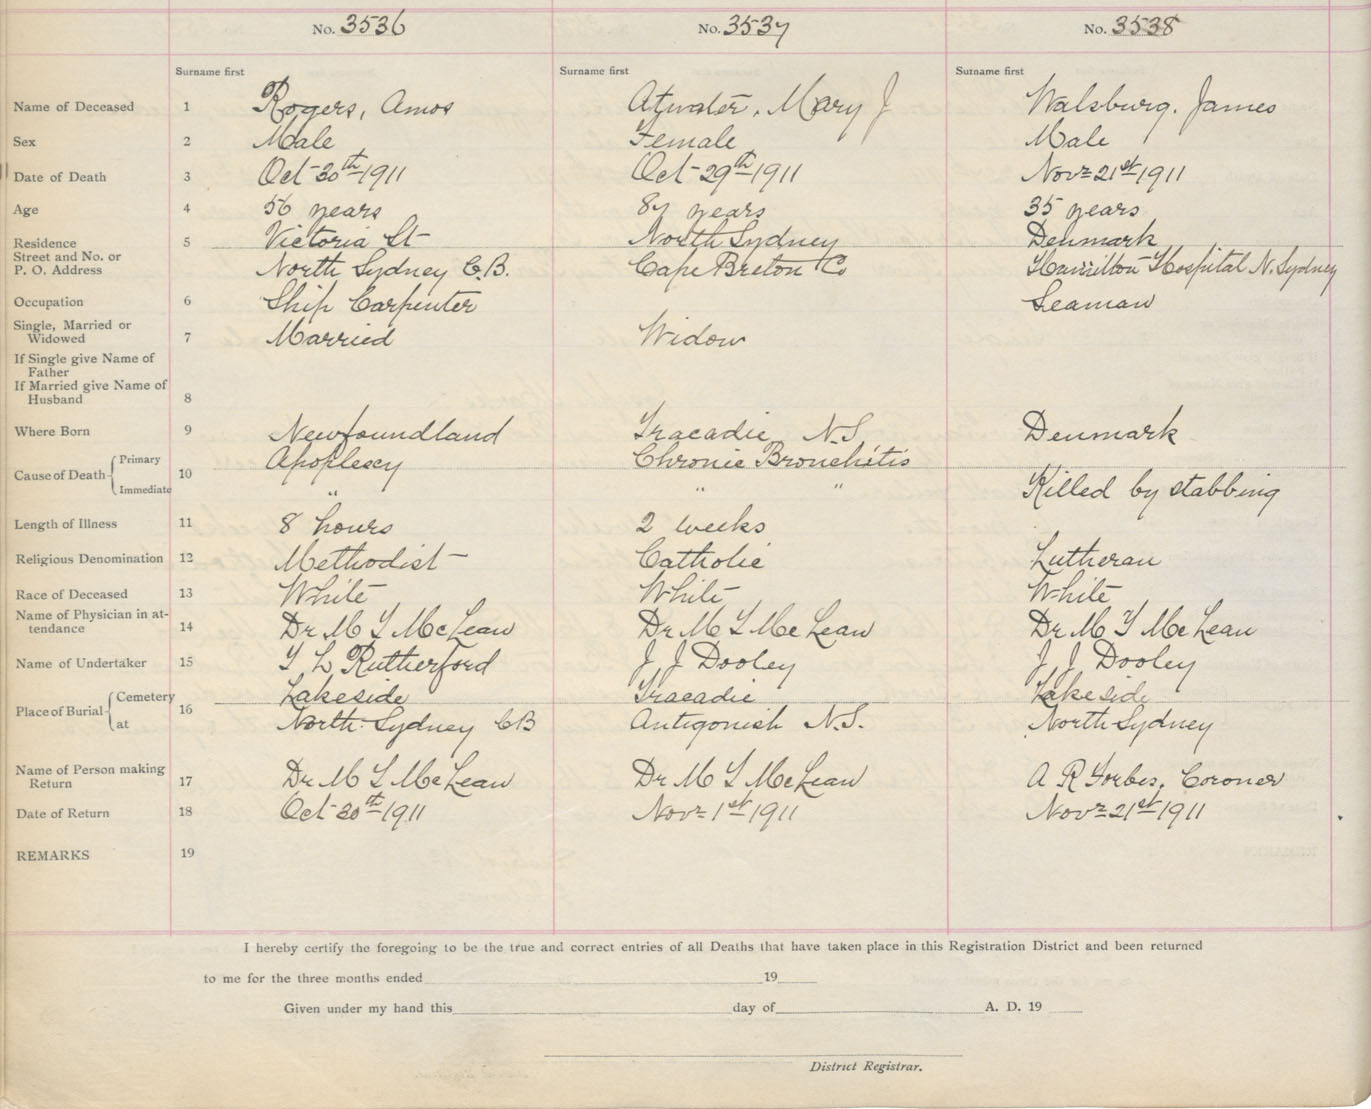 No. 3536 No. 3537 No. 3538
Surname first Surname first Surname first
Name of Deceased 1 Rogers, Amos Atwater, Mary J Walsburg, James
Sex 2 Male Female Male
Date of Death 3 Oct 30th 1911 Oct 29th 1911 Novr 21st 1911
Age 4 56 years 87 years 35 years
Residence 5 Victoria St North Sydney Denmark
Street and No. or
P. O. Address North Sydney C.B. Cape Breton Co Hamilton Hospital N. Sydney
Occupation 6 Ship Carpenter Seaman
Single, Married or
Widowed 7 Married Widow
If Single give Name of
Father
If Married give Name of
Husband 8
Where Born 9 Newfoundland Tracadie N.S. Denmark
Cause of Death Primary 10 Apoplexy Chronic Bronchitis
Immediate " " " Killed by stabbing
Length of Illness 11 8 hours 2 weeks
Religious Denomination 12 Methodist Catholic Lutheran
Race of Deceased 13 White White White
Name of Physician in at-
tendance 14 Dr M T McLean Dr M T McLean Dr M T McLean
Name of Undertaker 15 T L Rutherford J J Dooley J J Dooley
Place of Burial Cemetery 16 Lakeside Tracadie Lakeside
at North Sydney CB Antigonish N.S. North Sydney
Name of Person making
Return 17 Dr M T McLean Dr M T McLean A R Forbes, Coroner
Date of Return 18 Oct 30th 1911 Novr 1st 1911 Novr 21st 1911
REMARKS 19
I hereby certify the foregoing to be the true and correct entries of all Deaths that have taken place in this Registration District and been returned
to me for the three months ended 19
Given under my hand this day of A. D. 19
District Registrar.